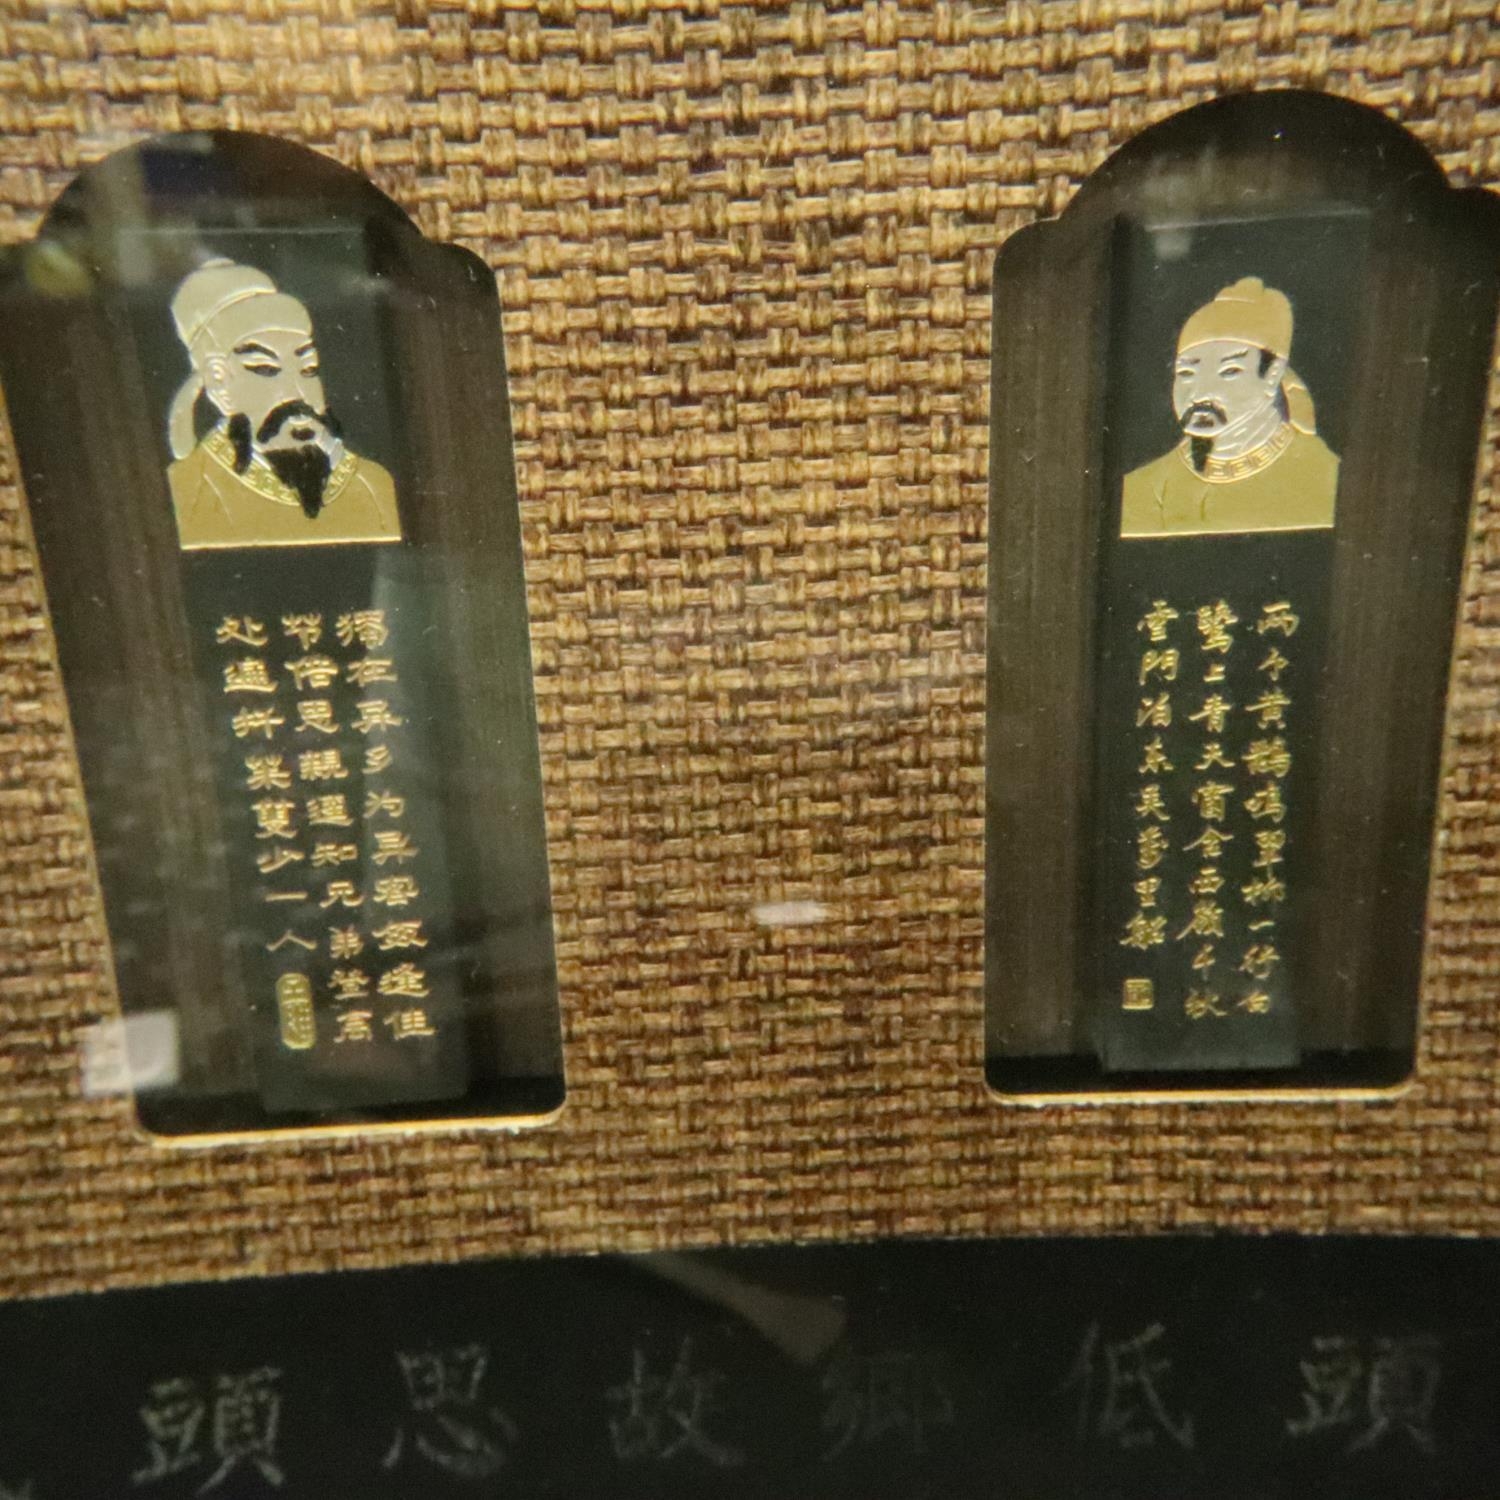 獨在异乡为异客每逢佳
节倍思親遥知兄弟登高
处遍插茱萸少一人
两个黄鸝鳴翠柳一行白
鷺上青天窗含西嶺千秋
雪門泊东吳萬里船
頭思故鄉低頭